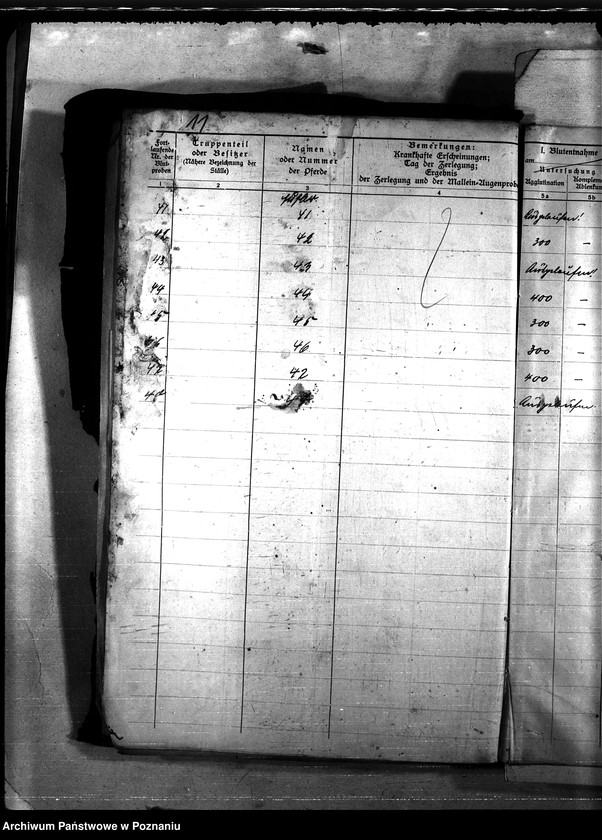 11
Fort-
laufende
Nr. der
Blut-
proben
Truppenteil
oder Besitzer
(Nähere Bezeichnung der
Ställe)
Namen
oder Nummer
der Pferde
Bemerkungen:
Krankhafte Erscheinungen;
Tag der Zerlegung;
Ergebnis
der Zerlegung und der Mallein-Augenprobe
I. Blutentnahme
am
Untersuchung
Agglutination
1 2 3 4 5a 5b
41 41 Ausgelaufen!
42 42 300 —
43 43 Ausgelaufen!
44 44 400 —
45 45 300 —
46 46 300 —
47 47 400 —
48 Ausgelaufen
Archiwum Państwowe w Poznaniu